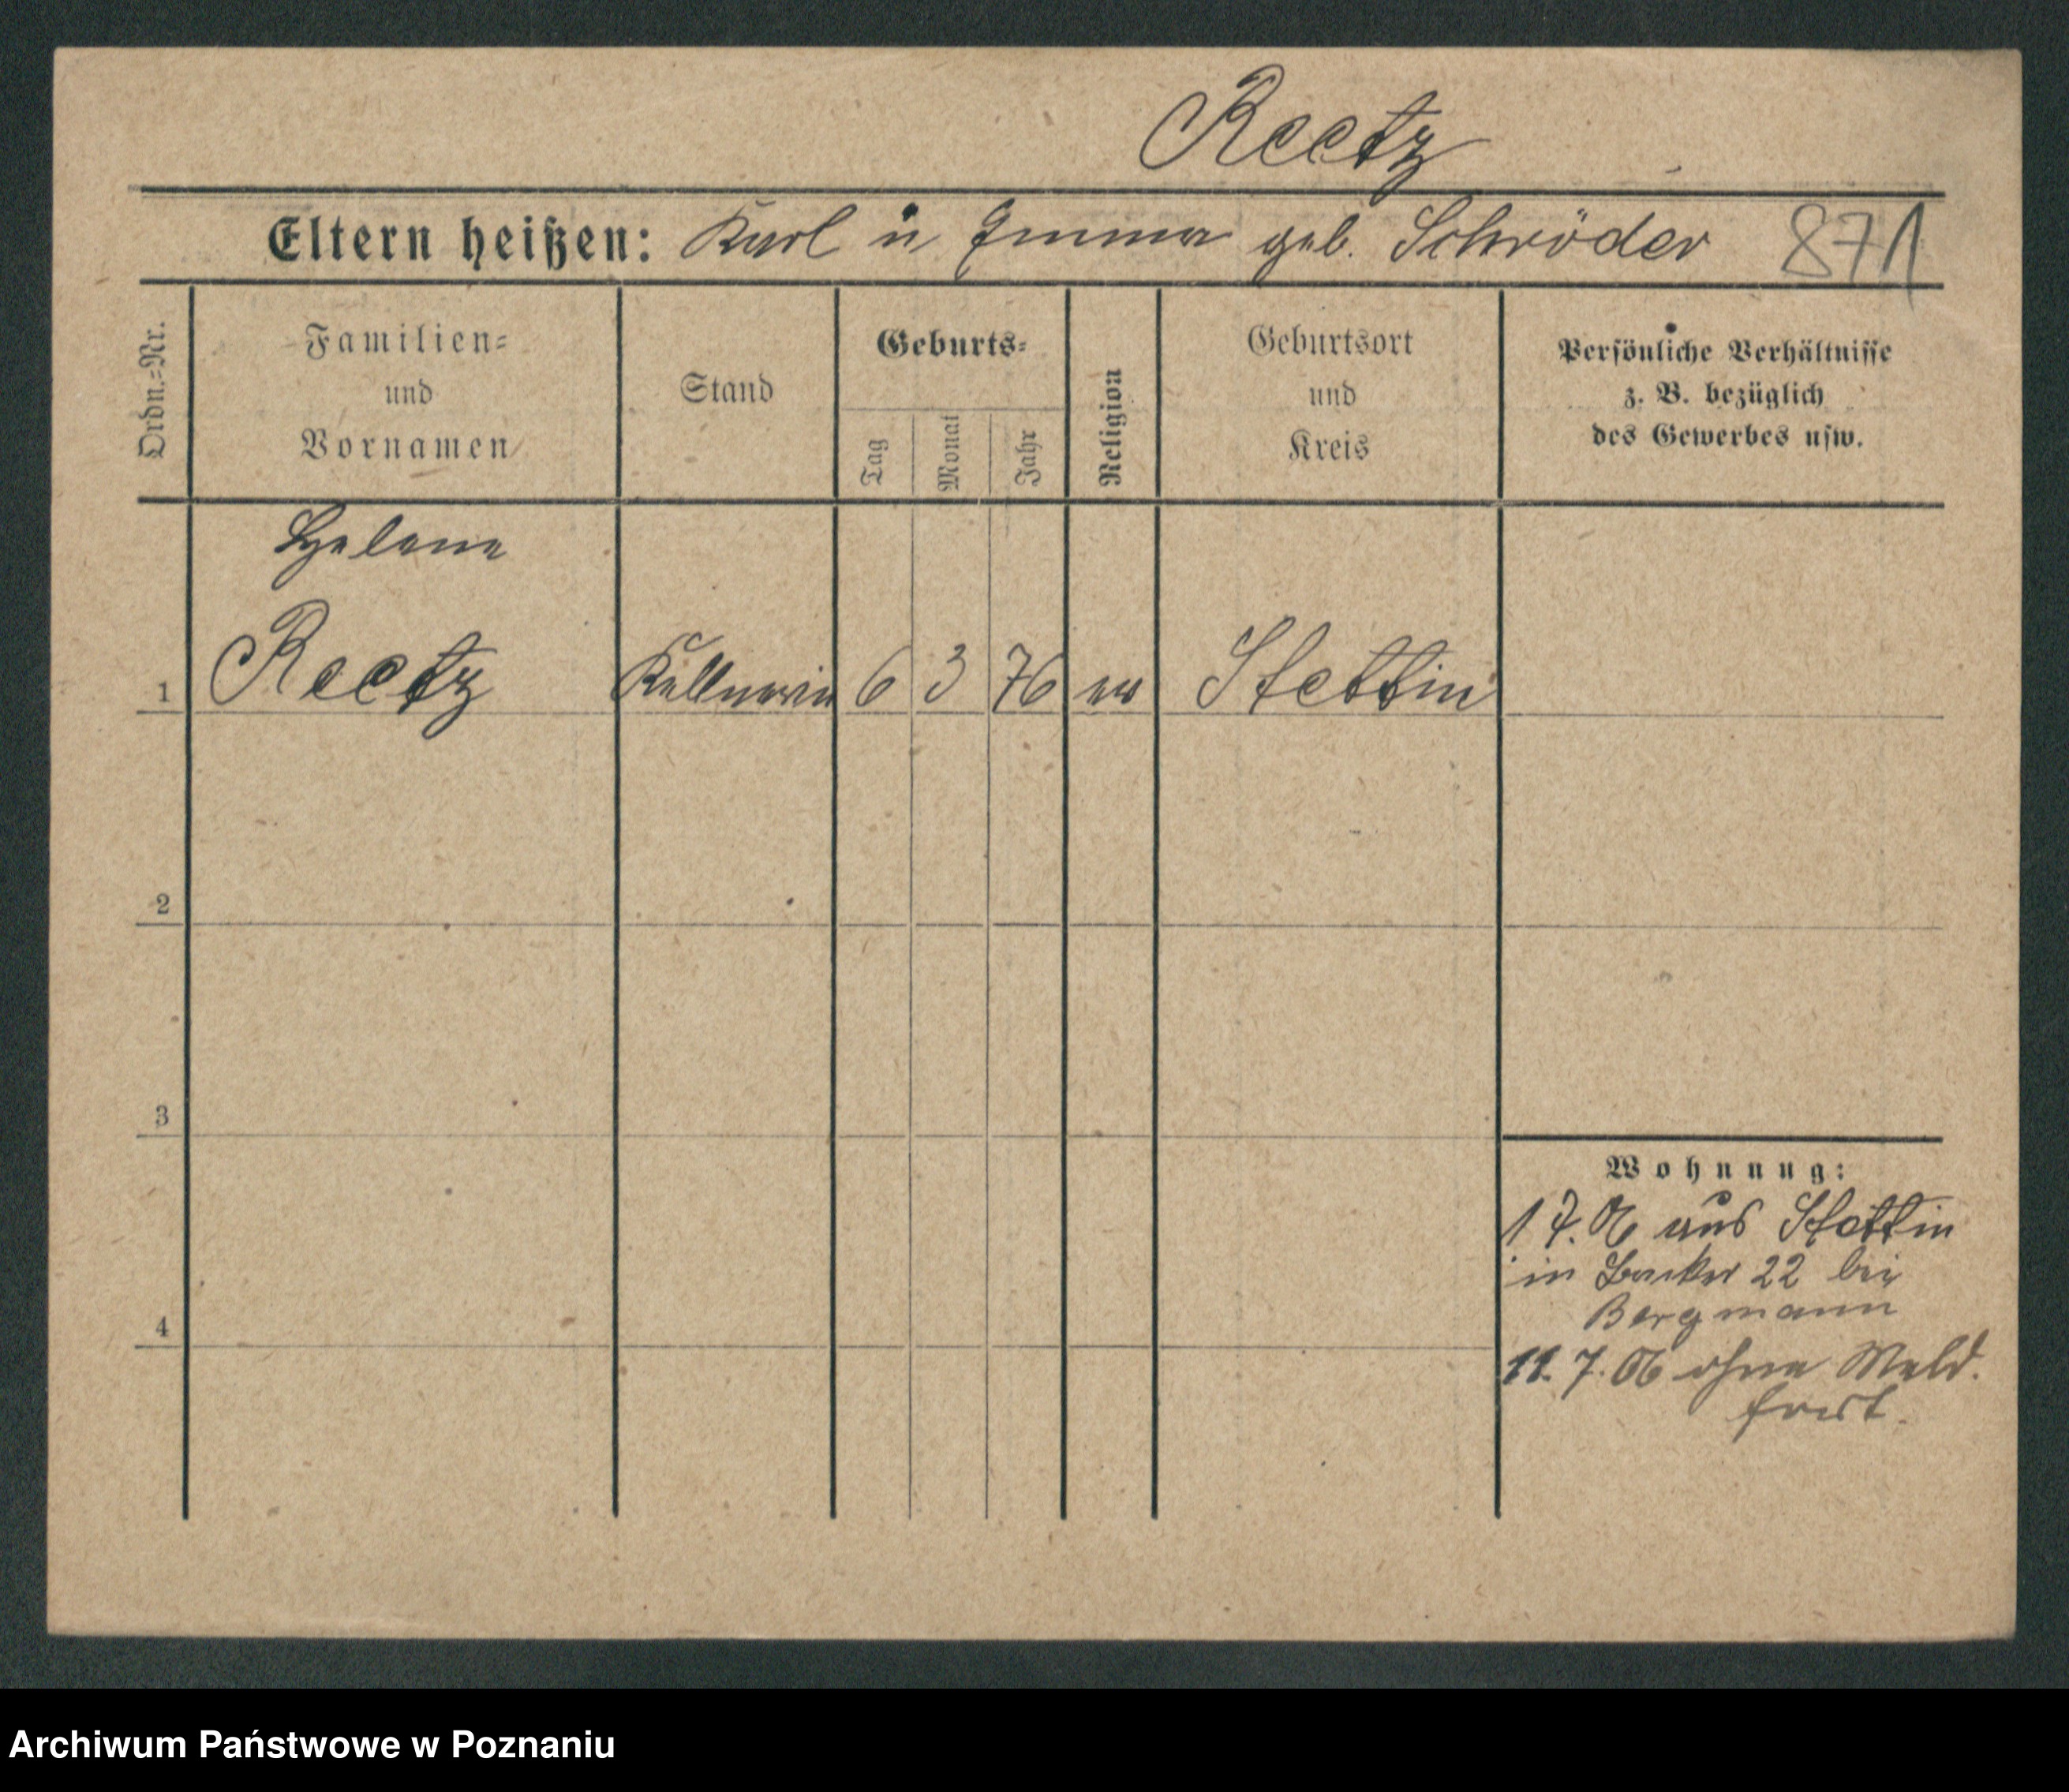 Reetz
Eltern heißen: Karl u Emma geb. Schröder 871
Ordn.-Nr.
Familien-
und
Vornamen
Stand
Geburts-
Tag
Monat
Jahr
Religion
Geburtsort
und
Kreis
Persönliche Verhältnisse
z. B. bezüglich
des Gewerbes usw.
Helene
1 Reetz Kellnerin 6 3 76 ev Stettin
2
3
4
Wohnung:
1 7. 06 aus Stettin
in 22 bei
Bergmann
11. 7. 06 ohne Meld.
fort.
Archiwum Państwowe w Poznaniu